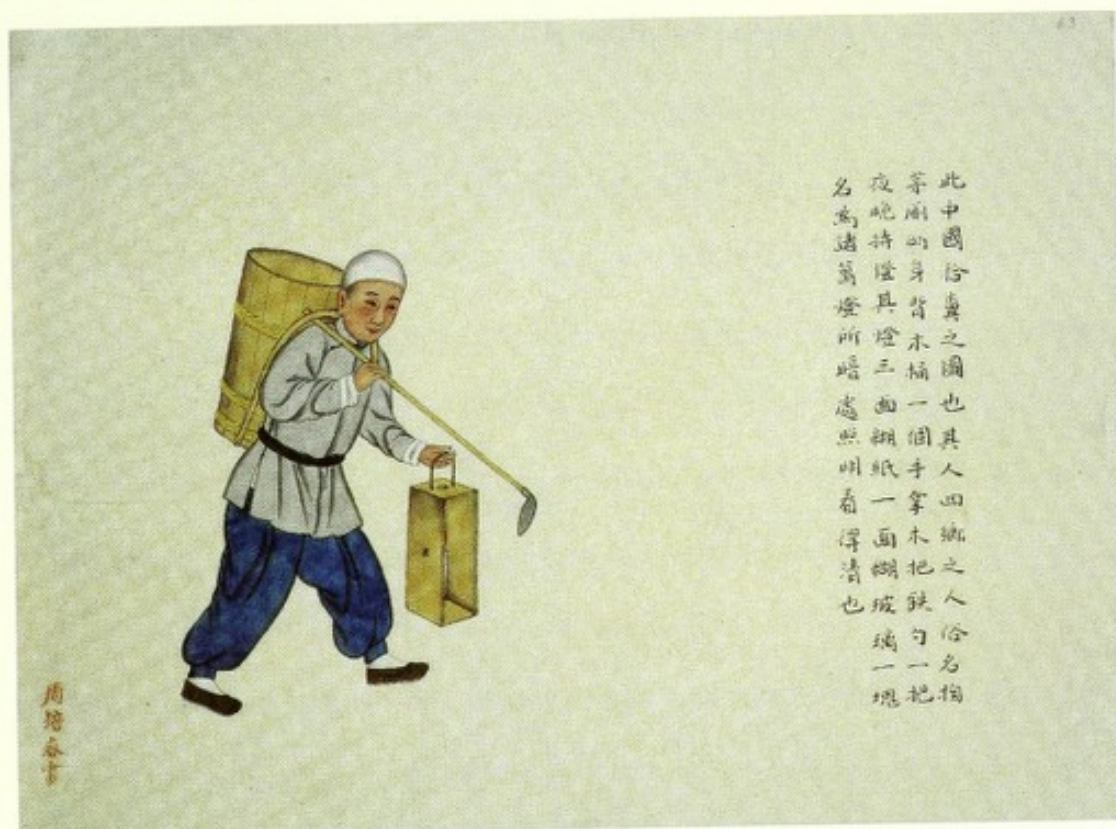 63
此中國拾糞之圖也其人四鄉之人俗名掏
茅厠的身背木桶一個手拿木把鉄勺一把
夜晚持燈其燈三面糊紙一面糊玻璃一塊
名為燈所暗處照明看得清也
周培春畫